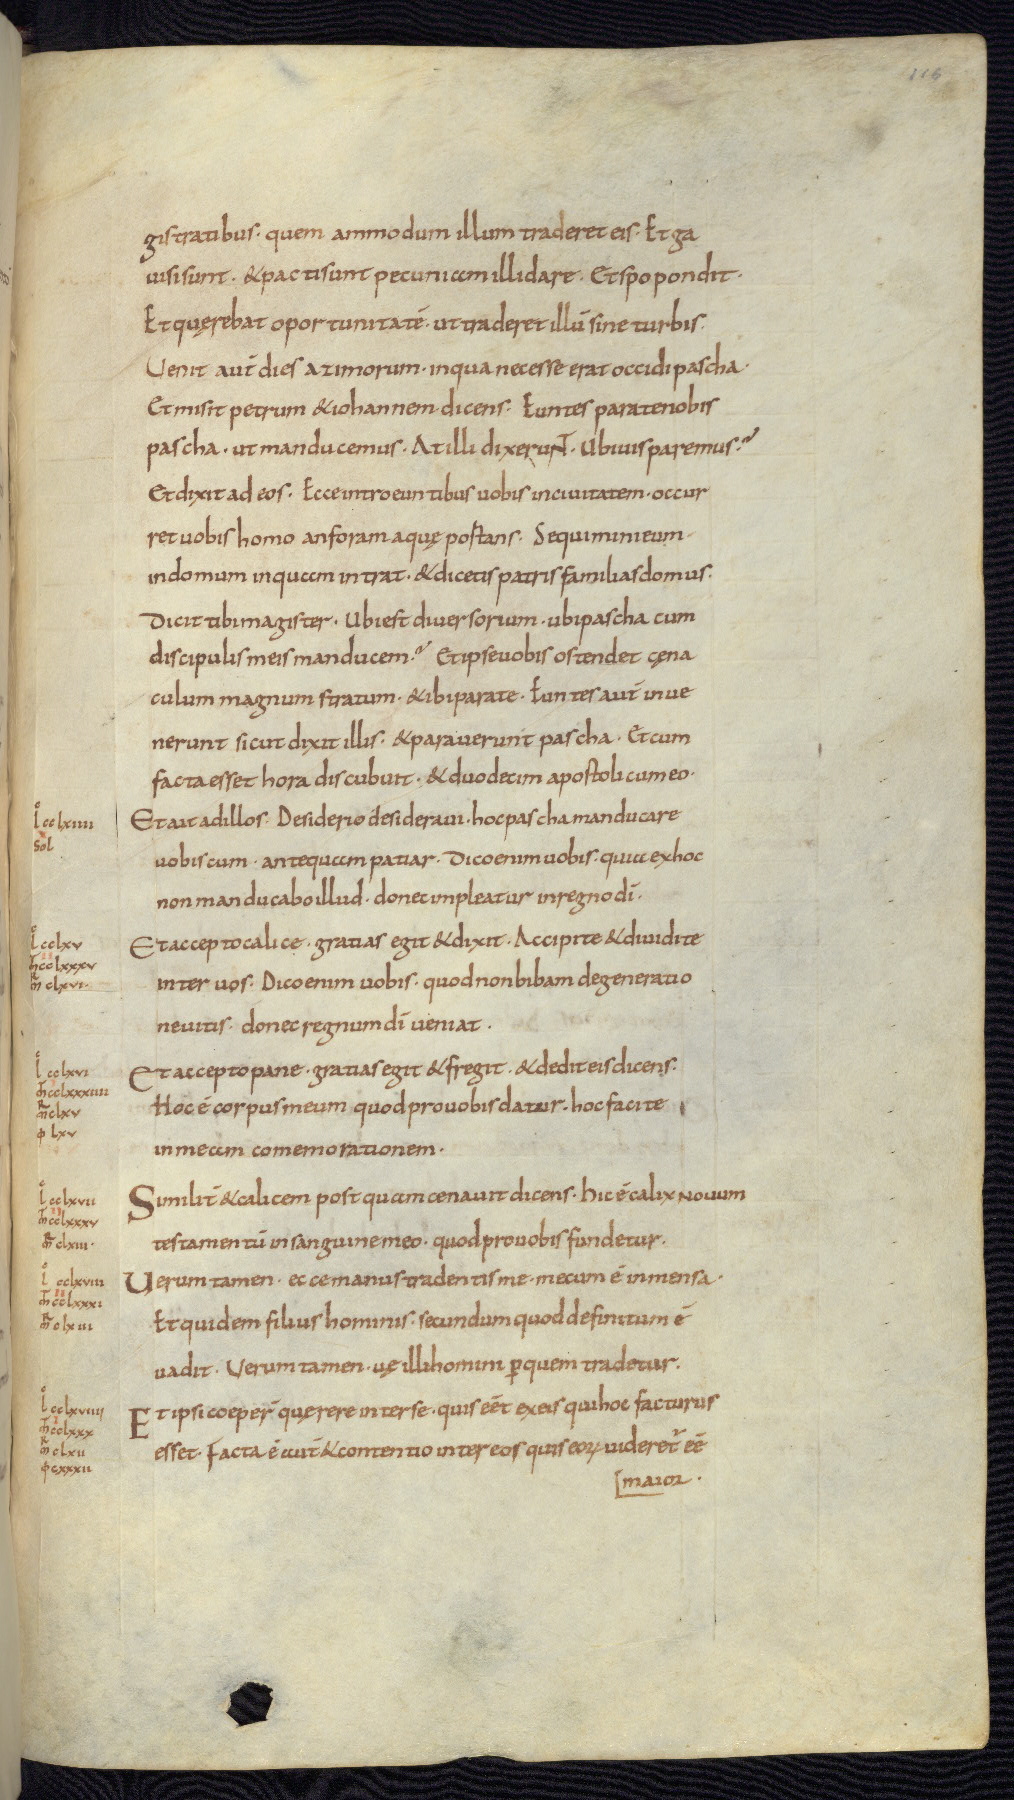 116
gistratibus · quem ammodum illum traderet eis · Et ga
uisi sunt · & pacti sunt pecuniam illi dare · Et spopondit ·
Et quęrebat oportunitatē · ut traderet illū sine turbis ·
Uenit aut̄ dies azimorum · in qua necesse erat occidi pascha ·
Et misit petrum & iohannem dicens · Euntes parate nobis
pascha · ut manducemus · At illi dixerunt · Ubi uis paremus ·?
Et dixit ad eos · Ecce introeuntibus uobis in ciuitatem · occur
ret uobis homo anforam aquę portans · Sequimini eum ·
in domum in quam intrat · & dicetis patris familias domus ·
Dicit tibi magister · Ubi est diuersorium · ubi pascha cum
discipulis meis manducem ·? Et ipse uobis ostendet cęna
culum magnum stratum · & ibi parate · Euntes aut̄ inue
nerunt sicut dixit illis · & parauerunt pascha · Et cum
facta esset hora discubuit · & duodecim apostoli cum eo ·
l̊ cclxiiii
Et ait ad illos · Desiderio desideraui · hoc pascha manducare
sol
uobiscum · antequam patiar · Dico enim uobis · quia ex hoc
non manducabo illud · donec impleatur in regno dī ·
l̊ cclxv
Et accepto calice · gratias egit & dixit · Accipite & diuidite
m̄ cclxxxv
inter uos · Dico enim uobis · quod non bibam de generatio
m̄ clxvi ·
ne uitis · donec regnum dī ueniat ·
l̊ cclxvi
Et accepto pane · gratias egit & fregit · & dedit eis dicens ·
m̄ cclxxxiiii
Hoc ē corpus meum quod pro uobis datur · hoc facite
m̄ clxv
φ lxv
in meam comemorationem ·
l̊ cclxvii
Similit̄ & calicem postquam cenauit dicens · hic ē calix nouum
m̄ cclxxxv
testamentū in sanguine meo · quod pro uobis fundetur ·
m̄ clxiii ·
l̊ cclxviii
Uerum tamen · ecce manus tradentis me · mecum ē in mensa ·
m̄ cclxxxi
Et quidem filius hominis · secundum quod definitum ē
m̄ clxiii
uadit · Uerum tamen · uę illi homini ꝑ quem tradetur ·
l̊ cclxviiii
Et ipsi coeper̄ quęrere inter se · quis eēt ex eis qui hoc facturus
m̄ cclxxx
m̄ clxii
esset · Facta ē aut̄ & contentio inter eos quis eoꝝ uideret᷑ eē
φ cxxxii
[maior ·